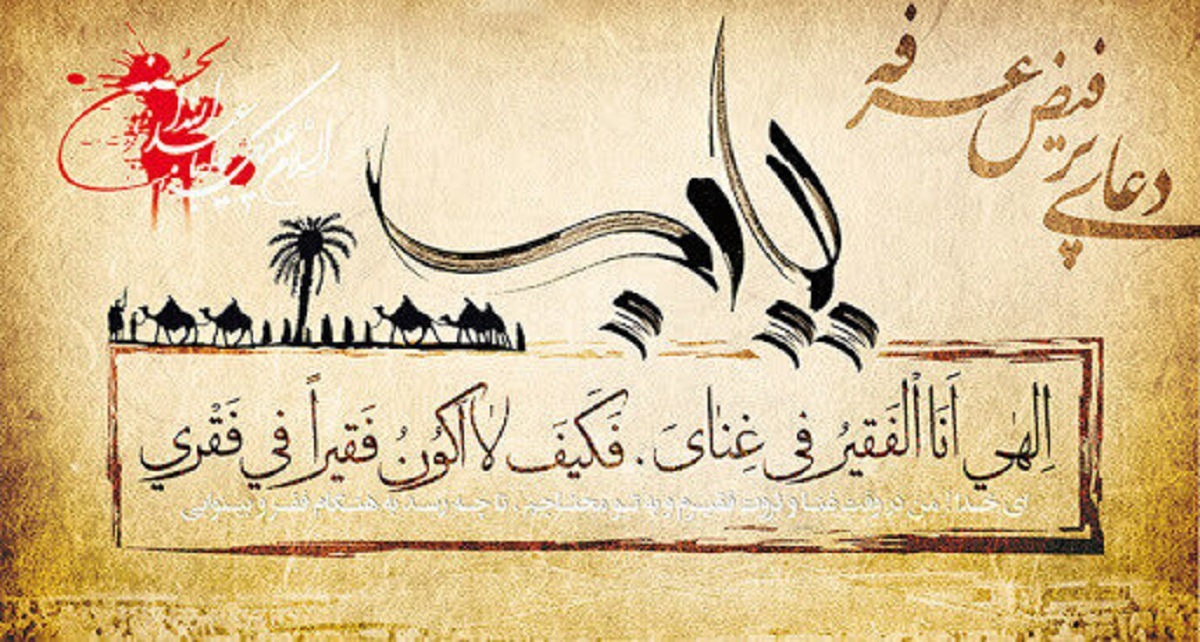 دعای پر فیض عرفه
یا رب
السلام علیک یا ابا عبدالله الحسین
اِلهٰي اَنَا الْفَقيرُ فی غِنٰایَ . فَکَیفَ لاٰ اَکوُنُ فَقیراً في فَقْري
ای خدا! من در وقت غنا و ثروت فقیرم و به تو محتاجم، تا چه رسد به هنگام فقر و بینوایی